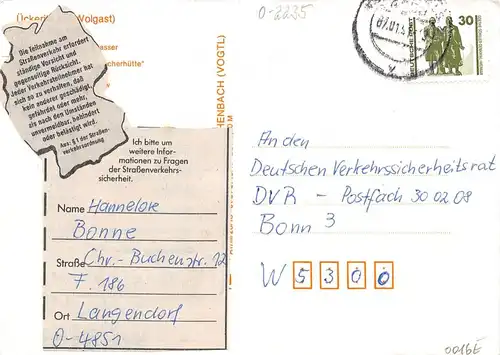 (Ückeri
Wolgast)
asser
scherhütte"
Die Teilnahme am
Straßenverkehr erfordert
ständige Vorsicht und
gegenseitige Rücksicht.
Jeder Verkehrsteilnehmer hat
sich so zu verhalten, daß
kein anderer geschädigt,
gefährdet oder mehr,
als nach den Umständen
unvermeidbar, behindert
oder belästigt wird.
Aus: § 1 der Straßen-
verkehrsordnung
Ich bitte um
weitere Infor-
mationen zu Fragen
der Straßenverkehrs-
sicherheit.
Name Hannelore
Bonne
Straße Chr.-Buchenstr. 12
F. 186
Ort Langendorf
O-4851
HENBACH (VOGTL)
O-2235
DEUTSCHE POST
30
An den
Deutschen Verkehrssicherheitsrat
DVR - Postfach 30 02 08
Bonn 3
W 5300
0016E